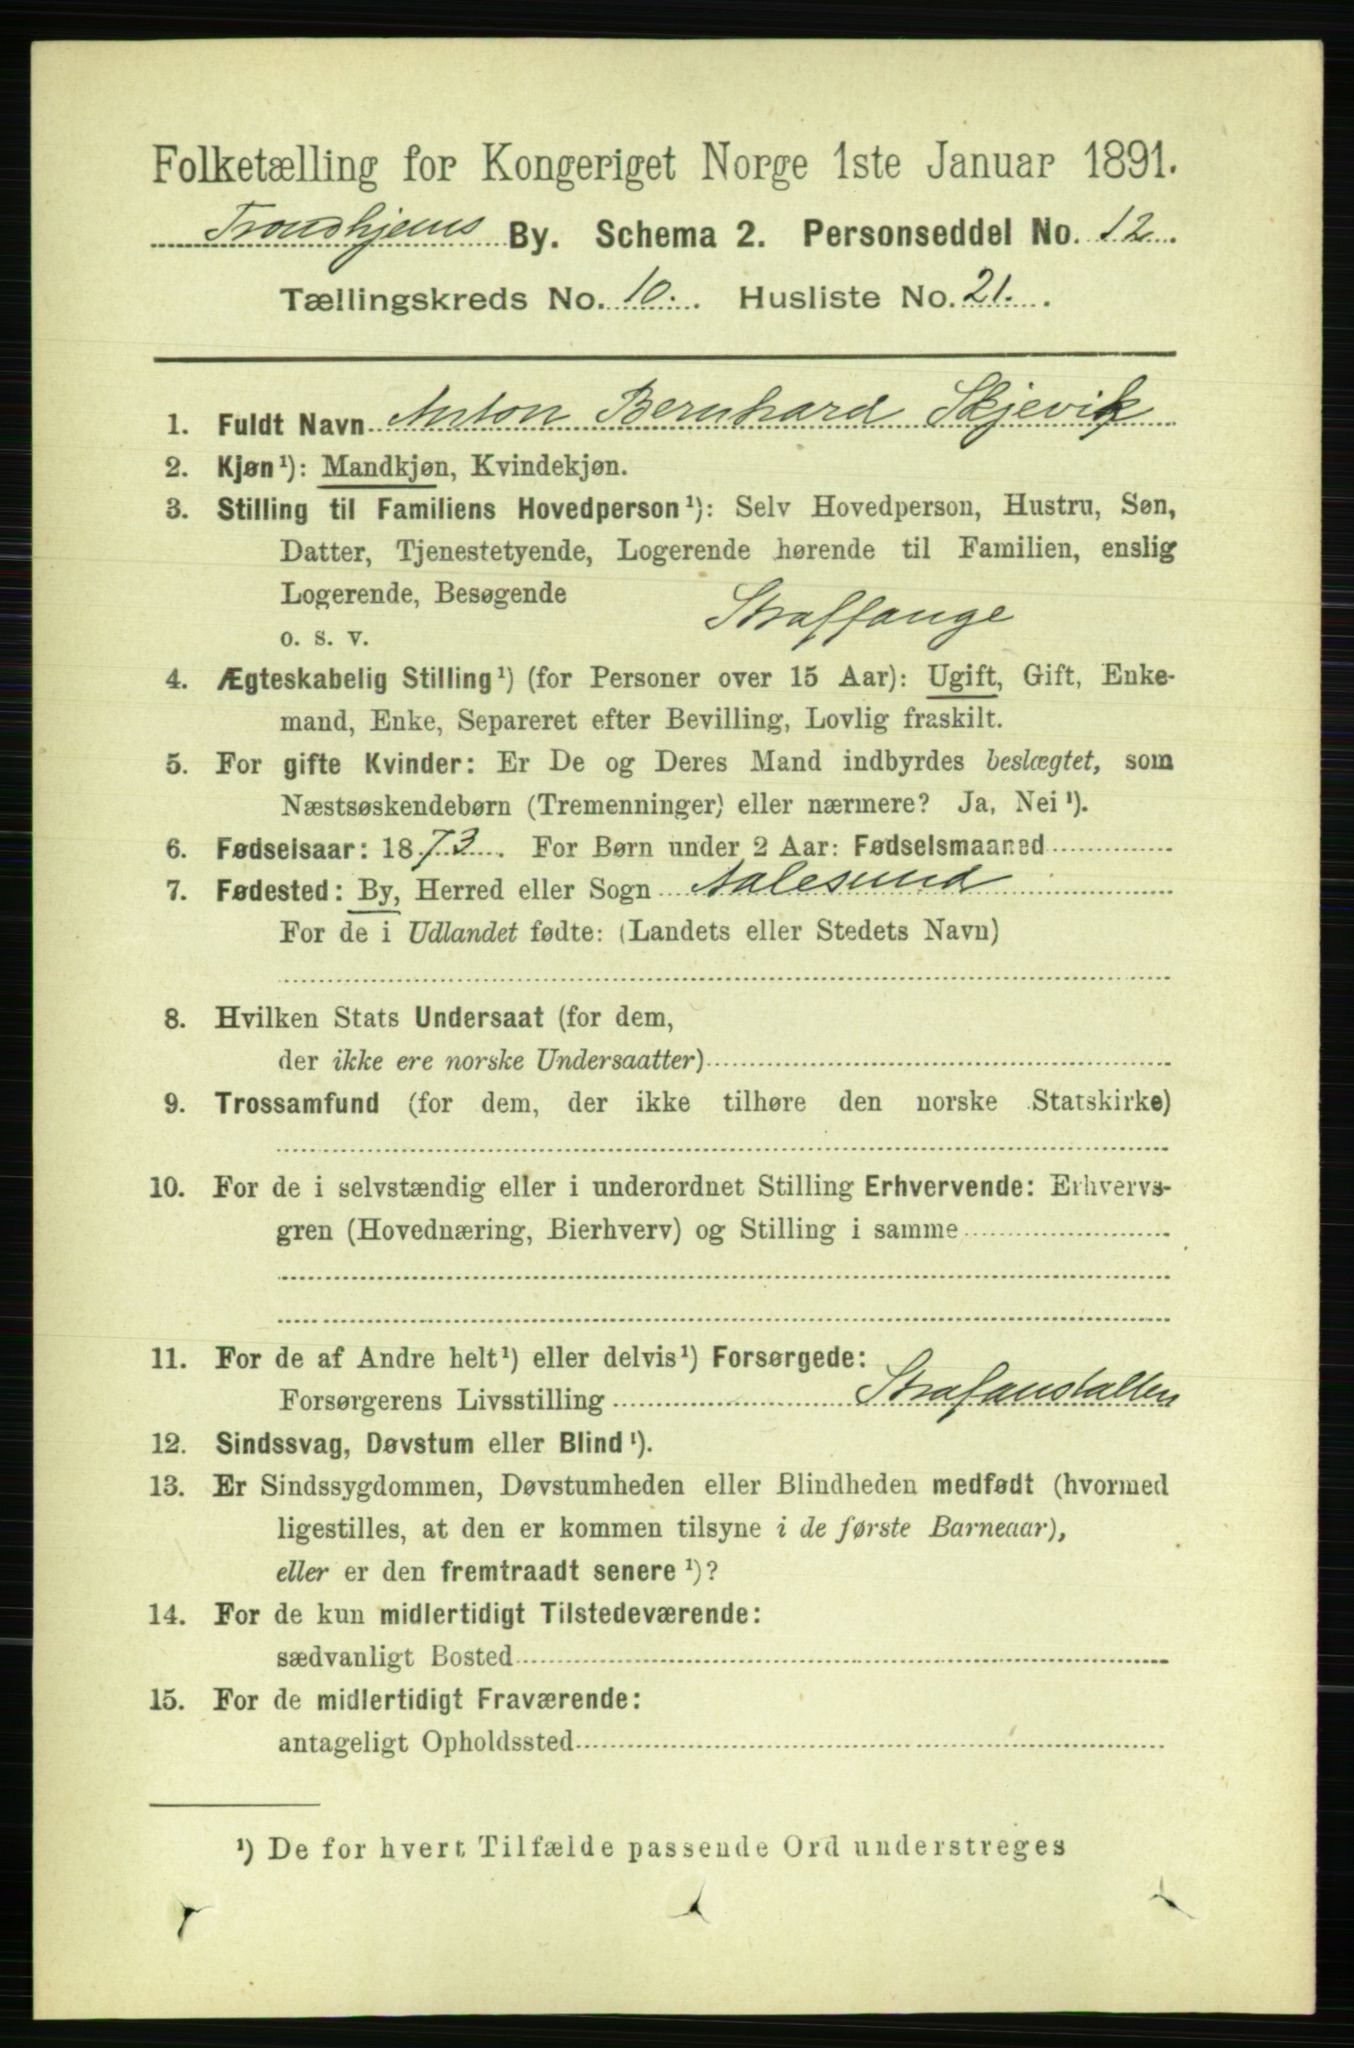 Folketælling for Kongeriget Norge 1ste Januar 1891.
Trondhjems By. Schema 2. Personseddel No. 12.
Tællingskreds No. 10. Husliste No. 21.
1. Fuldt Navn Anton Bernhard Skjevik
2. Kjøn¹): Mandkjøn, Kvindekjøn.
3. Stilling til Familiens Hovedperson¹): Selv Hovedperson, Hustru, Søn,
Datter, Tjenestetyende, Logerende hørende til Familien, enslig
Logerende, Besøgende
o. s. v. Straffange
4. Ægteskabelig Stilling¹) (for Personer over 15 Aar): Ugift, Gift, Enke-
mand, Enke, Separeret efter Bevilling, Lovlig fraskilt.
5. For gifte Kvinder: Er De og Deres Mand indbyrdes beslægtet, som
Næstsøskendebørn (Tremenninger) eller nærmere? Ja, Nei¹).
6. Fødselsaar: 1873. For Børn under 2 Aar: Fødselsmaaned
7. Fødested: By, Herred eller Sogn Aalesund
For de i Udlandet fødte: (Landets eller Stedets Navn)
8. Hvilken Stats Undersaat (for dem,
der ikke ere norske Undersaatter)
9. Trossamfund (for dem, der ikke tilhøre den norske Statskirke)
10. For de i selvstændig eller i underordnet Stilling Erhvervende: Erhvervs-
gren (Hovednæring, Bierhverv) og Stilling i samme
11. For de af Andre helt¹) eller delvis¹) Forsørgede:
Forsørgerens Livsstilling Strafanstalten
12. Sindssvag, Døvstum eller Blind¹).
13. Er Sindssygdommen, Døvstumheden eller Blindheden medfødt (hvormed
ligestilles, at den er kommen tilsyne i de første Barneaar),
eller er den fremtraadt senere¹)?
14. For de kun midlertidigt Tilstedeværende:
sædvanligt Bosted
15. For de midlertidigt Fraværende:
antageligt Opholdssted
¹) De for hvert Tilfælde passende Ord understreges